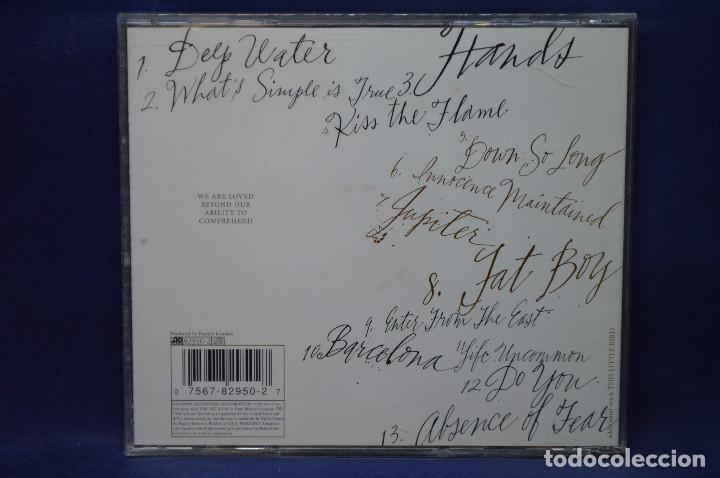 1. Deep Water
2. What's Simple is True
3. Hands
4. Kiss the Flame
5. Down So Long
6. Innocence Maintained
7. Jupiter
8. Fat Boy
9. Enter From The East
10. Barcelona
11. Life Uncommon
12. Do You
13. Absence of Fear
WE ARE LOVED
BEYOND OUR
ABILITY TO
COMPREHEND
Produced by Patrick Leonard
82950-2
0 7567-82950-2 7
additional track THIS LITTLE BIRD
todocoleccion.net